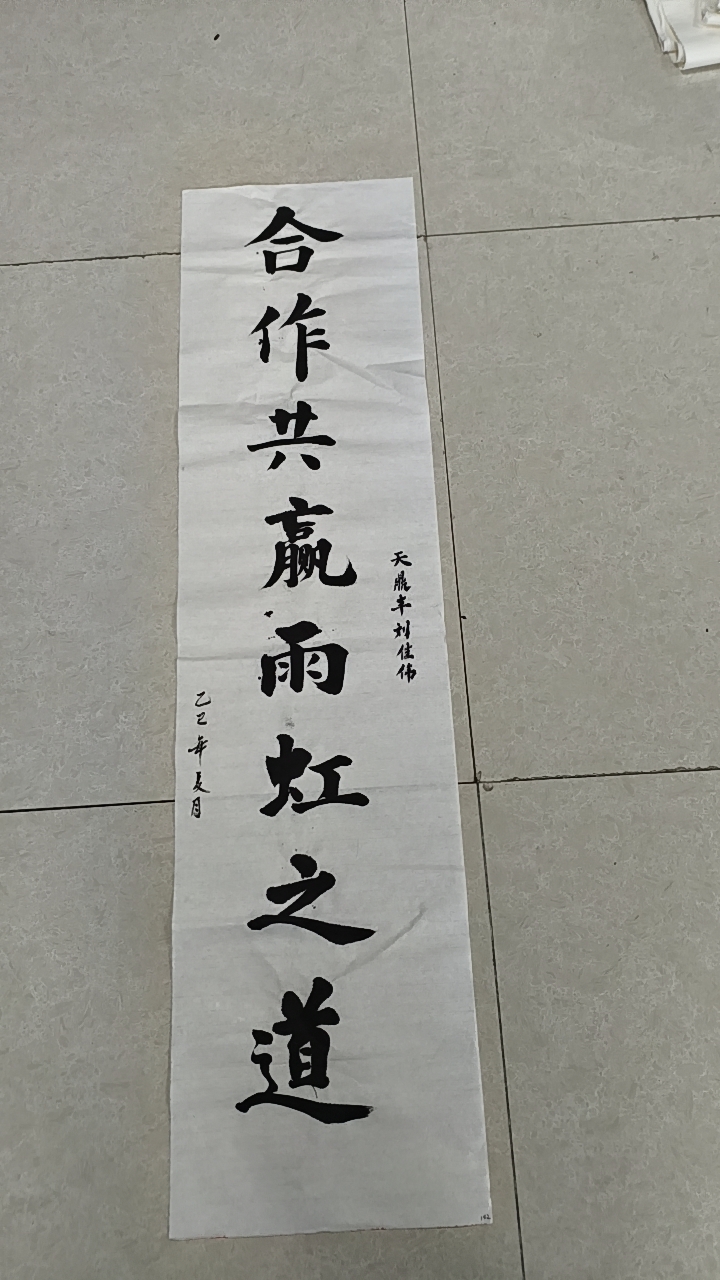 合作共赢雨虹之道
天鼎丰刘佳伟
乙巳年夏月